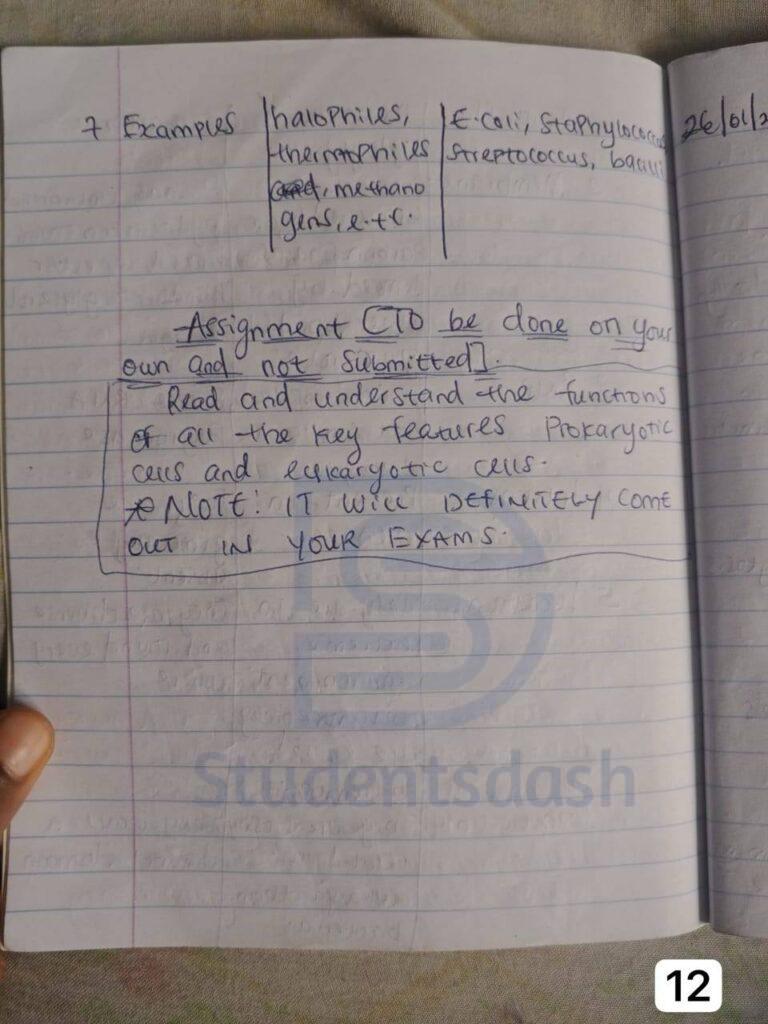 7 Examples halophiles, E.coli, Staphylococcus 26/01/2
thermophiles Streptococcus, bacilli
, methano
gens, e.t.c.
Assignment [To be done on your
own and not submitted].
Read and understand the functions
of all the key features Prokaryotic
cells and eukaryotic cells.
* NOTE: IT WILL DEFINITELY COME
OUT IN YOUR EXAMS.
Studentsdash
12